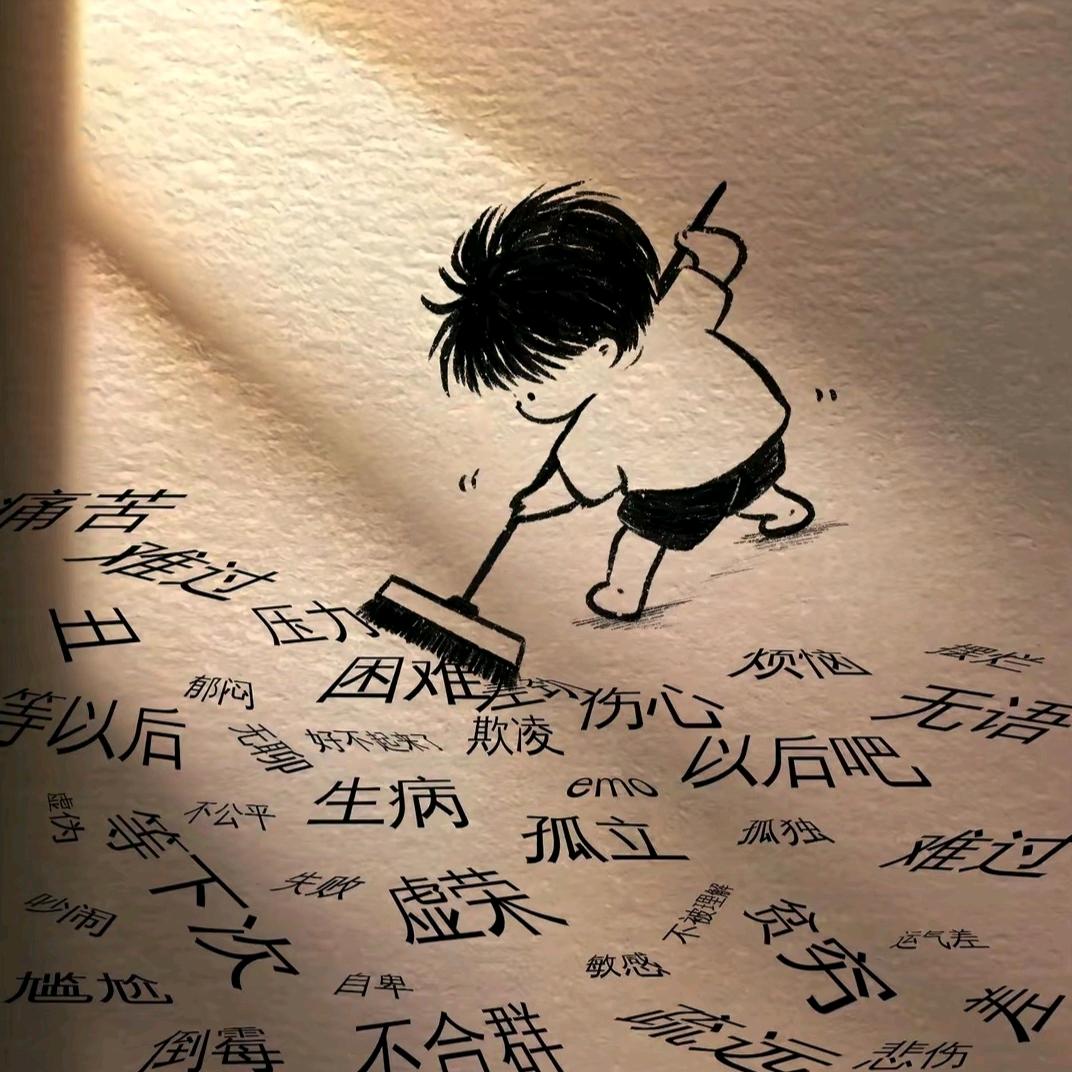 痛苦
难过
丑
压力
困难
烦恼
摆烂
郁闷
伤心
无语
等以后
无聊
好不起来了
欺凌
以后吧
生病
emo
虚伪
不公平
等下次
孤立
孤独
难过
失败
虚荣
不被理解
贫穷
吵闹
运气差
尴尬
自卑
敏感
差
倒霉
不合群
疏远
悲伤